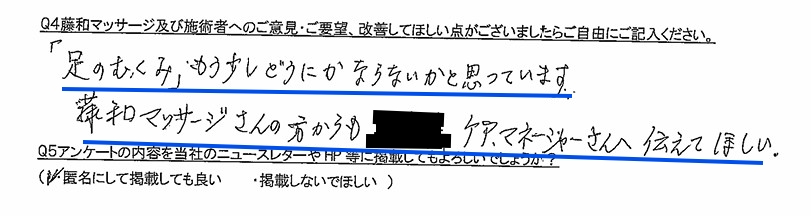 Q4藤和マッサージ及び施術者へのご意見・ご要望、改善してほしい点がございましたらご自由にご記入ください。
「足のむくみ」もう少しどうにかならないかと思っています。
藤和マッサージさんの方からも ケアマネージャーさんへ伝えてほしい。
Q5アンケートの内容を当社のニュースレターやHP等に掲載してもよろしいでしょうか？
(・匿名にして掲載しても良い ・掲載しないでほしい )